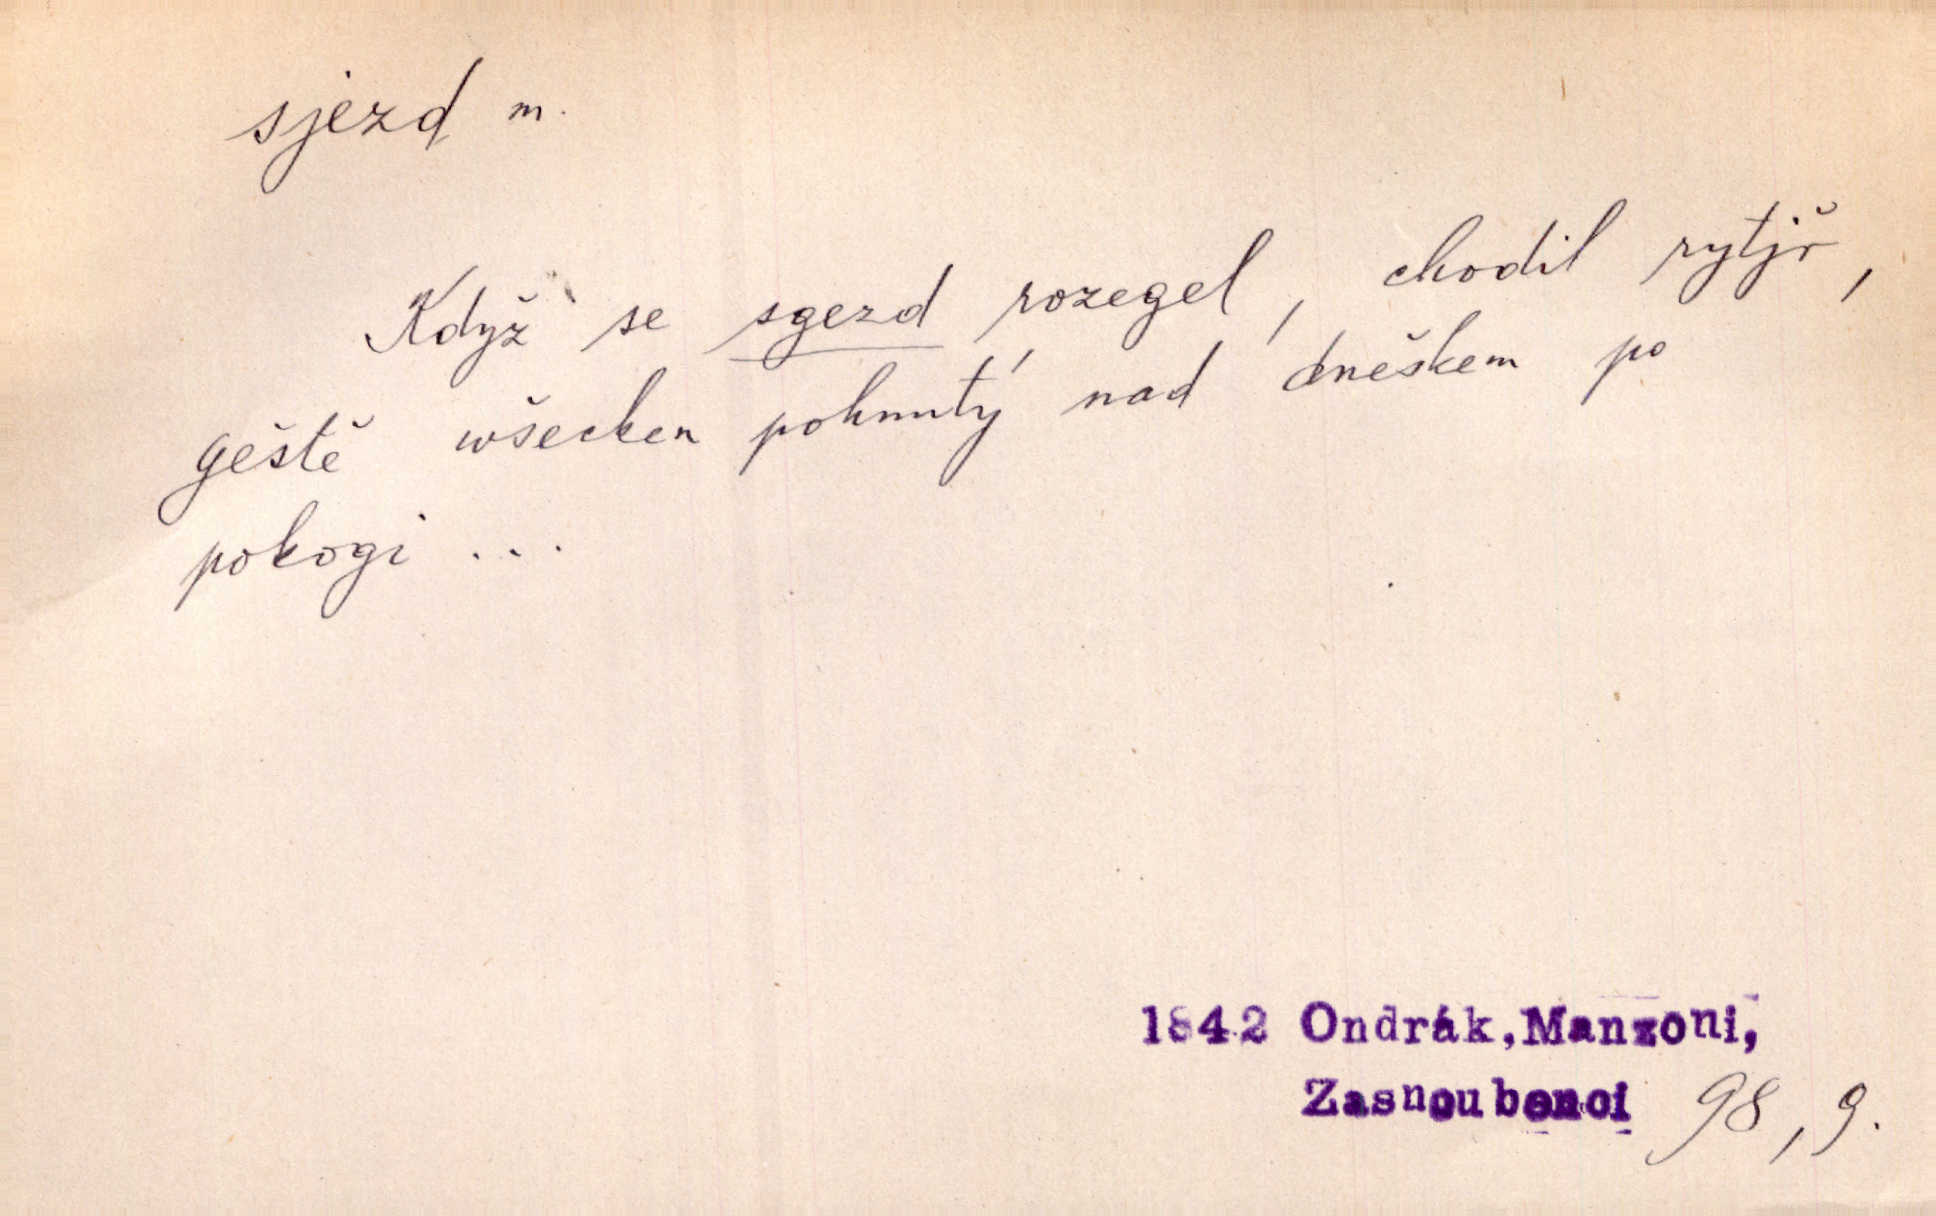 sjezd m.
Když se sgezd rozegel, chodil rytjř,
geště wšecken pohnutý nad dneškem po
pokogi ...
1842 Ondrák, Manzoni,
Zasnoubenci 98, 9.